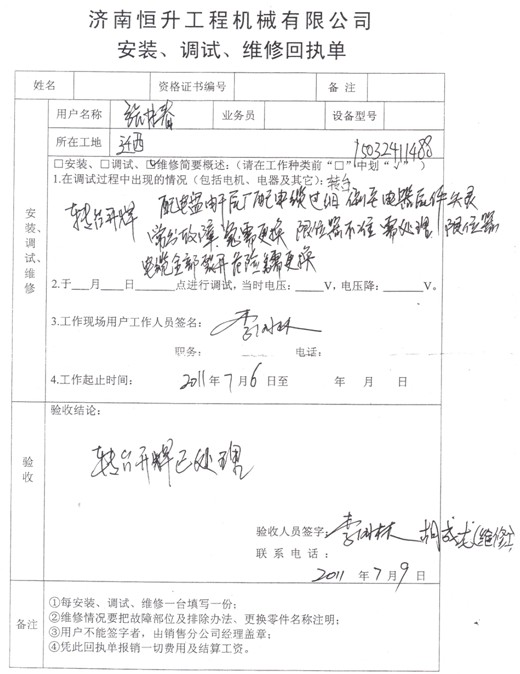 济南恒升工程机械有限公司
安装、调试、维修回执单
姓名 资格证书编号 备注
用户名称 业务员 设备型号
所在工地 迁西 15032411488
安装、调试、维修
□安装、□调试、☑维修简要概述:(请在工作种类前“□”中划“√”)
1.在调试过程中出现的情况(包括电机、电器及其它):转台
转台开焊 配电盘由于原厂配电缆过细 电器原件失灵
常出故障 需更换 限位器不准 需处理 限位器
电缆全部裂开危险需更换
2.于___月___日_____点进行调试,当时电压:_____V,电压降:_______V。
3.工作现场用户工作人员签名:
职务: 电话:
4.工作起止时间: 2011年7月6日至 年 月 日
验收
验收结论:
转台开焊已处理
验收人员签字: (维修)
联系电话:
2011年7月9日
备注
①每安装、调试、维修一台填写一份;
②维修情况要把故障部位及排除办法、更换零件名称注明;
③用户不能签字者,由销售分公司经理盖章;
④凭此回执单报销一切费用及结算工资。